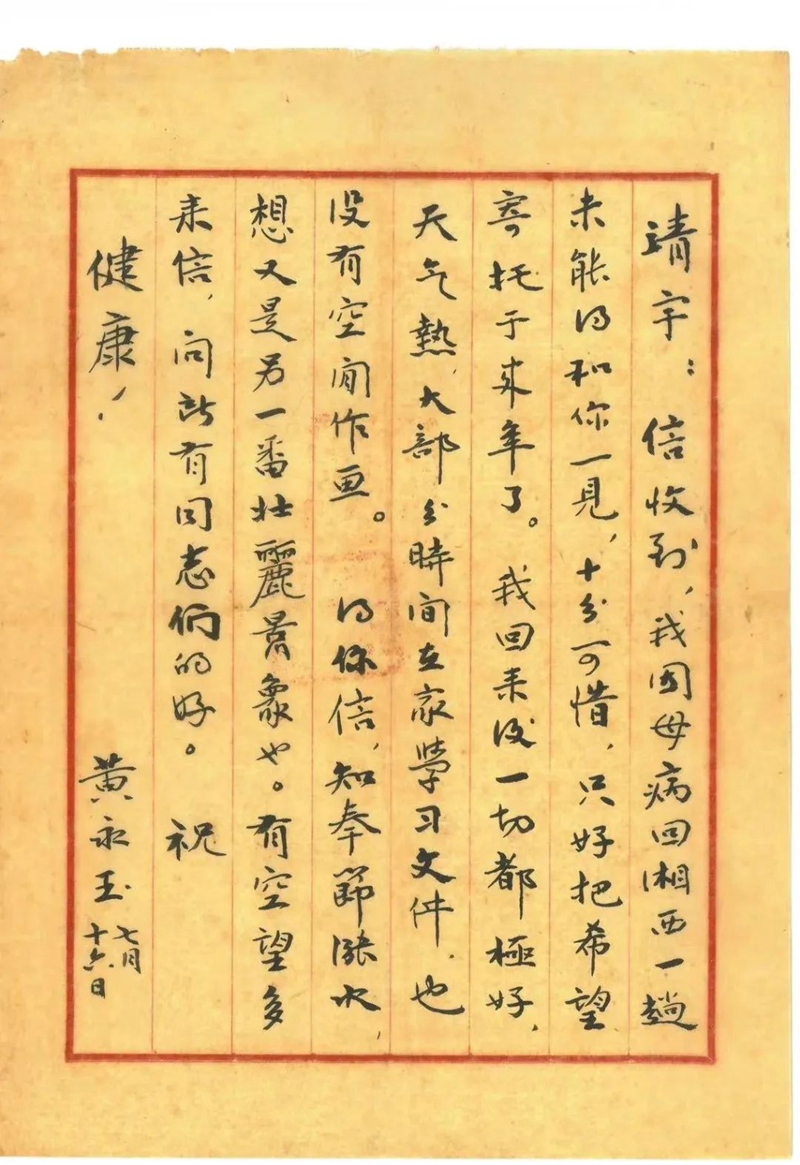 靖宇：信收到，我因母病回湘西一趟
未能得和你一見，十分可惜，只好把希望
寄托于来年了。我回来后一切都極好，
天气熱，大部分時间在家學习文件，也
没有空闻作画。得你信，知奉節漲水，
想又是另一番壮麗景象也。有空望多
来信，向所有同志們的好。祝
健康！
黄永玉
七月
十六日